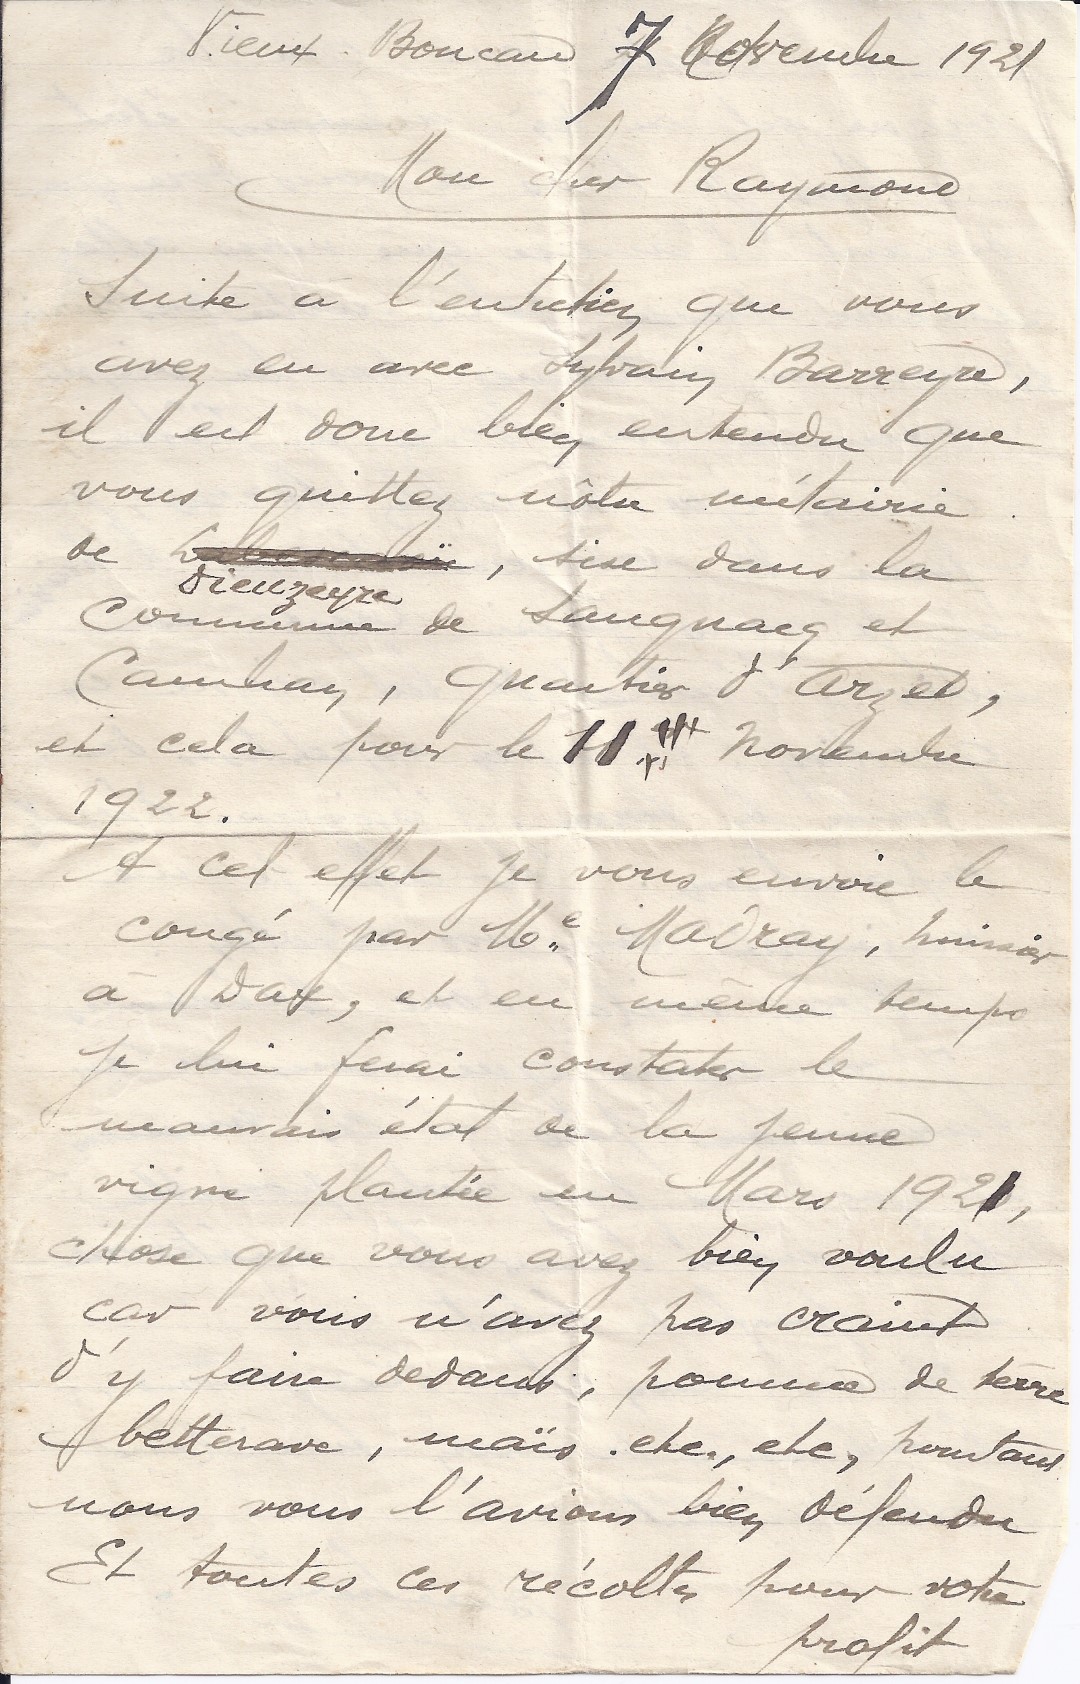 Vieux-Boucau 7 Novembre 1921
Mon cher Raymond
Suite à l'entretien que vous
avez eu avec Sylvain Barreyre,
il est donc bien entendu que
vous quittez nôtre métairie
de , sise dans la
Dieuzeyre
commune de Saugnacq et
Cambran, quartier d'Arzet,
et cela pour le 11 Novembre
1922.
A cet effet je vous envoie le
congé par Me Madray, huissier
à Dax, et en même temps
je lui ferai constater le
mauvais état de la jeune
vigne plantée en Mars 1921,
chose que vous avez bien voulu
car vous n'avez pas craint
d'y faire dedans, pomme de terre
betterave, maïs etc., etc, pourtant
nous vous l'avions bien défendu
Et toutes ces récoltes pour votre
profit